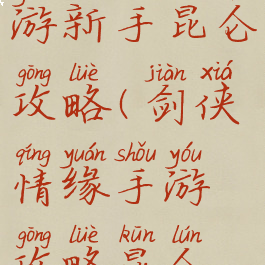 游新手昆仑
gōng lüè jiàn xiá
攻略(剑侠
qíng yuán shǒu yóu
情缘手游
gōng lüè kūn lún
攻略昆仑